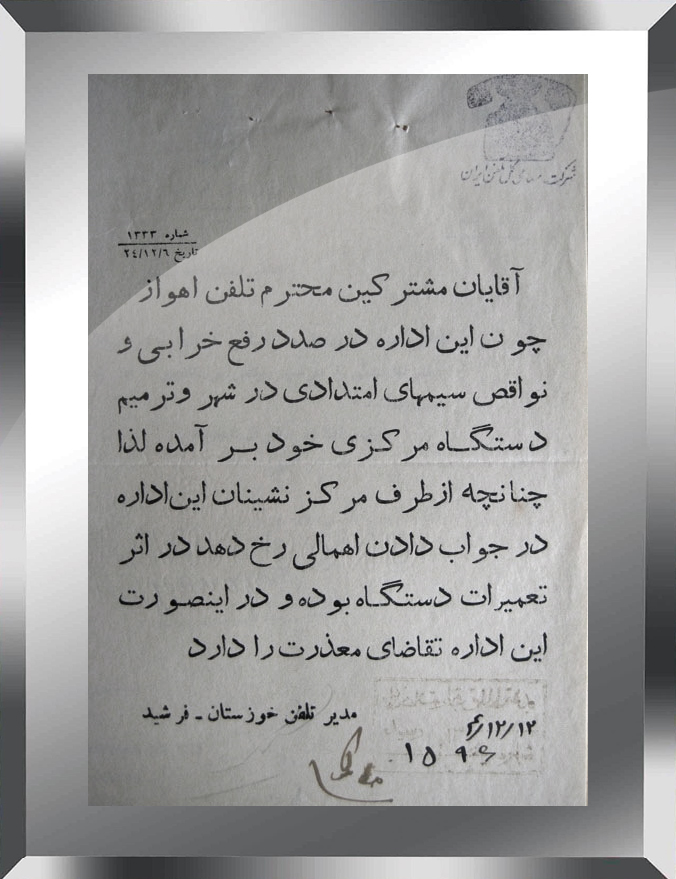 شرکت سهامی کل تلفن ایران
شماره ۱۳۳۳
تاریخ ۲۴/۱۲/۶
آقایان مشترکین محترم تلفن اهواز
چون این اداره در صدد رفع خرابی و
نواقص سیمهای امتدادی در شهر و ترمیم
دستگاه مرکزی خود بر آمده لذا
چنانچه از طرف مرکز نشینان این اداره
در جواب دادن اهمالی رخ دهد در اثر
تعمیرات دستگاه بوده و در اینصورت
این اداره تقاضای معذرت را دارد
مدیر تلفن خوزستان - فرشید